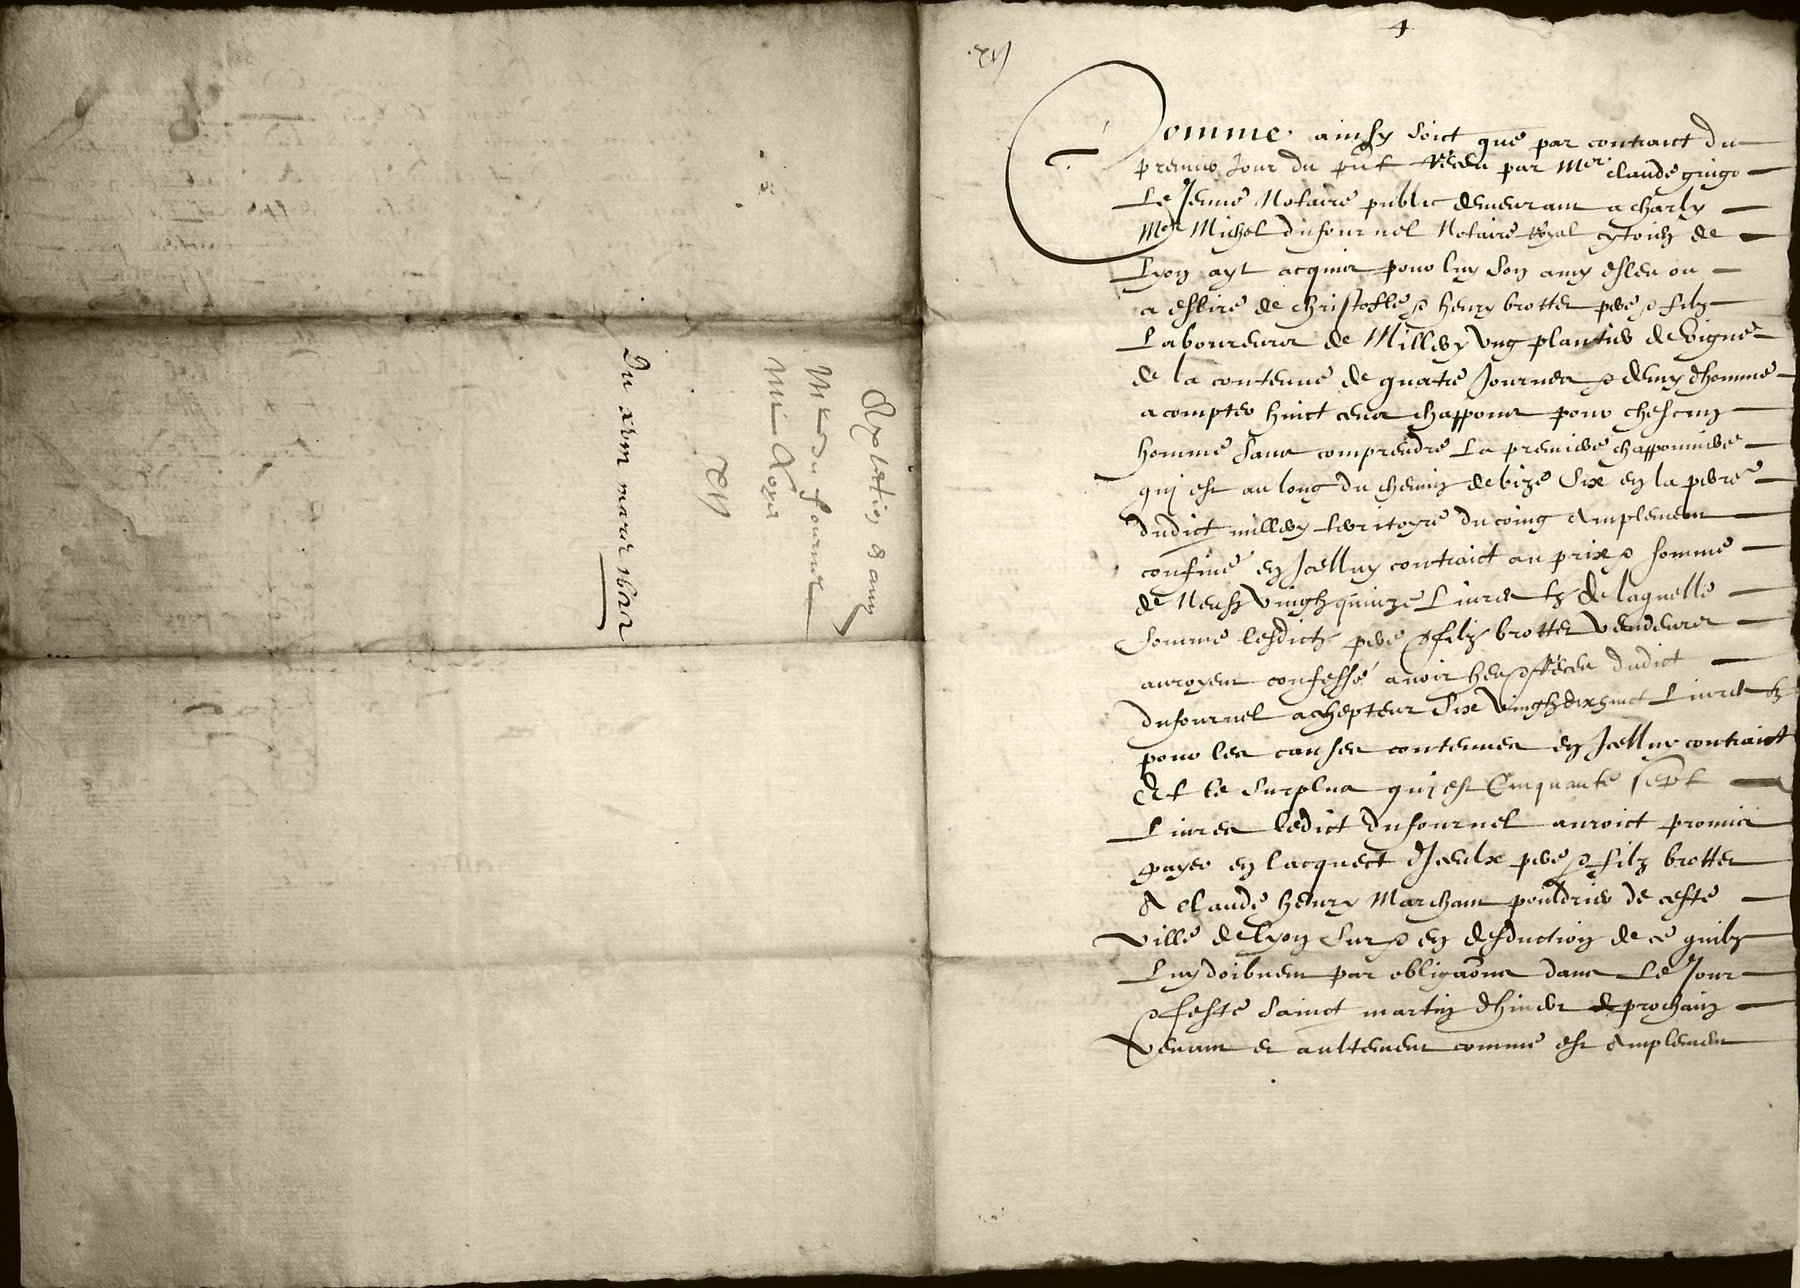 Du xviii mars 1602
Mr dufournel
4
Comme ainsy soict que par contraict du
premier Jour du pñt Receu par Mer claude gingo
Le Jeune Notaire public demeurant a charly
Mer Michel dufournel Notaire Royal cytoien de
Lyon ayt acquis pour luy son amy esleu ou
a eslire de christofle & henry brottet pere & filz
Laboureurs de Millery ung plantier de vigne
de la contenue de quatre Journes & demy dhomme
a compter huict cens chappons pour chescung
homme sans comprendre La premiere chapponniere
qui est au long du chemin de bize six en la perre
dudict millery territoyre du coing Amplement
confiné en Jcelluy contraict au prix & somme
de Neufz vingtz quinze Livres tz de laquelle
somme lesdictz pere & filz brottet vendeurs
auroyent confessé avoir heu & Receu dudict
dufournel achepteur six vingtz dixhuict Livres tz
pour les causes contenues en Jcelluy contraict
Et le surplus qui est Cinquante sept
Livres ledict dufournel auroict promis
payer en lacquect dJceulx pere & filz brottet
A claude henry Marchant pouldrier de ceste
ville de Lyon sur & en desduction de ce quilz
Luy doibvent par obligaõns dans Le Jour
& feste sainct martin dhiver prochain
venant et aultrement comme est Amplement